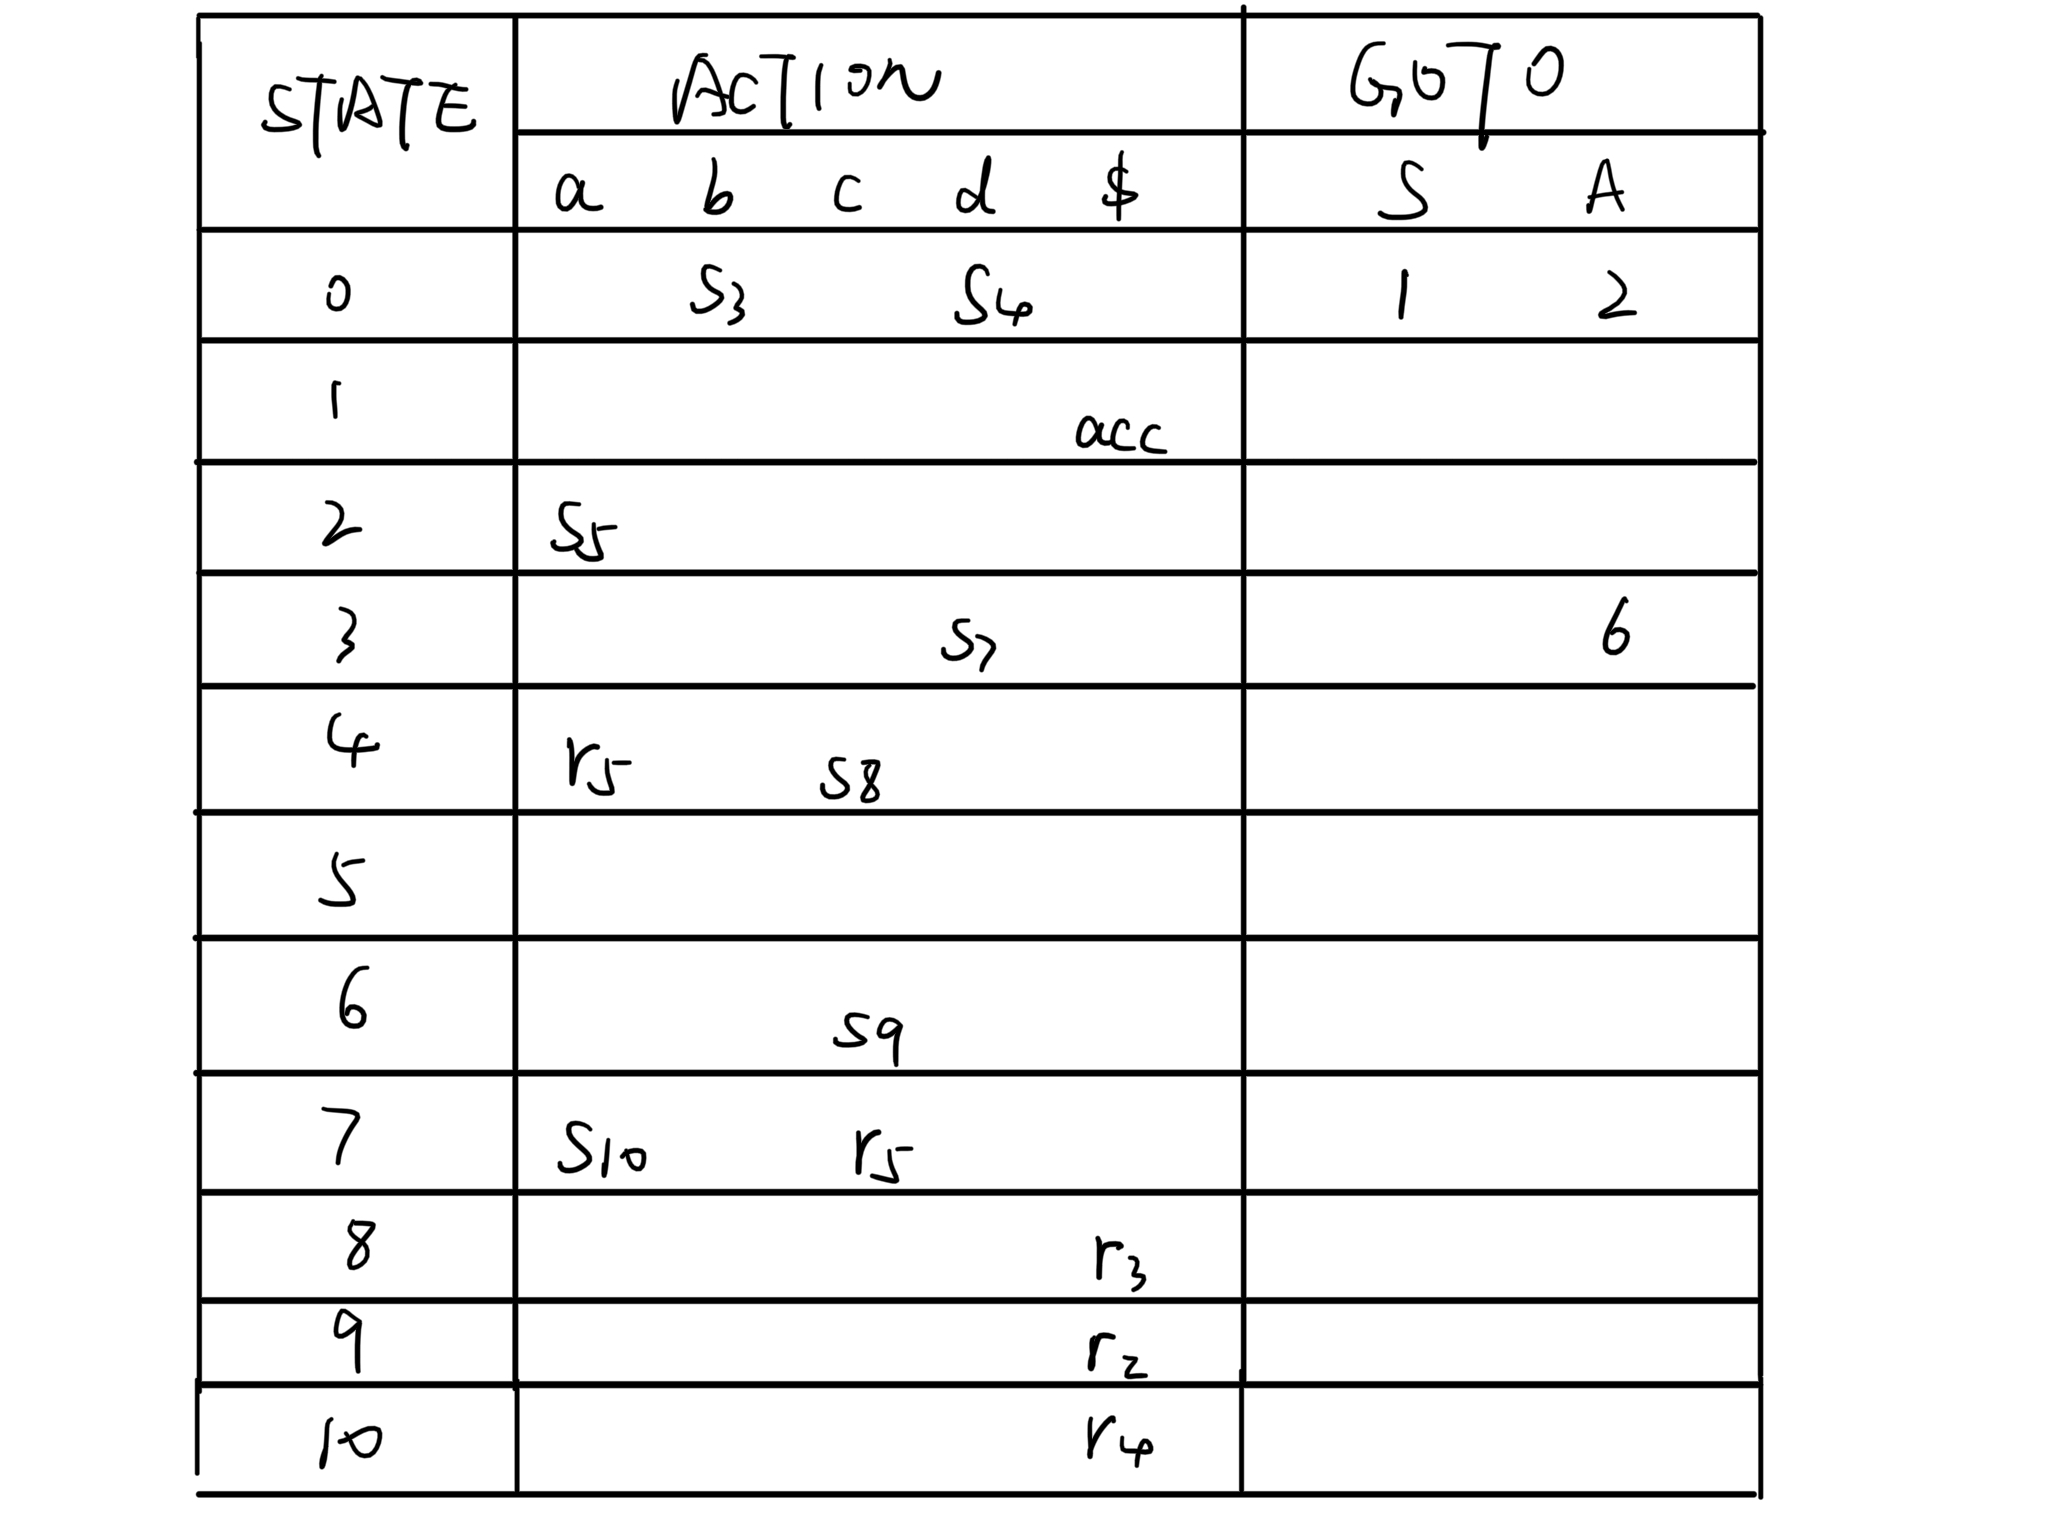 STATE ACTION GOTO
a b c d $ S A
0 S3 S4 1 2
1 acc
2 S5
3 S7 6
4 r5 S8
5
6 S9
7 S10 r5
8 r3
9 r2
10 r4